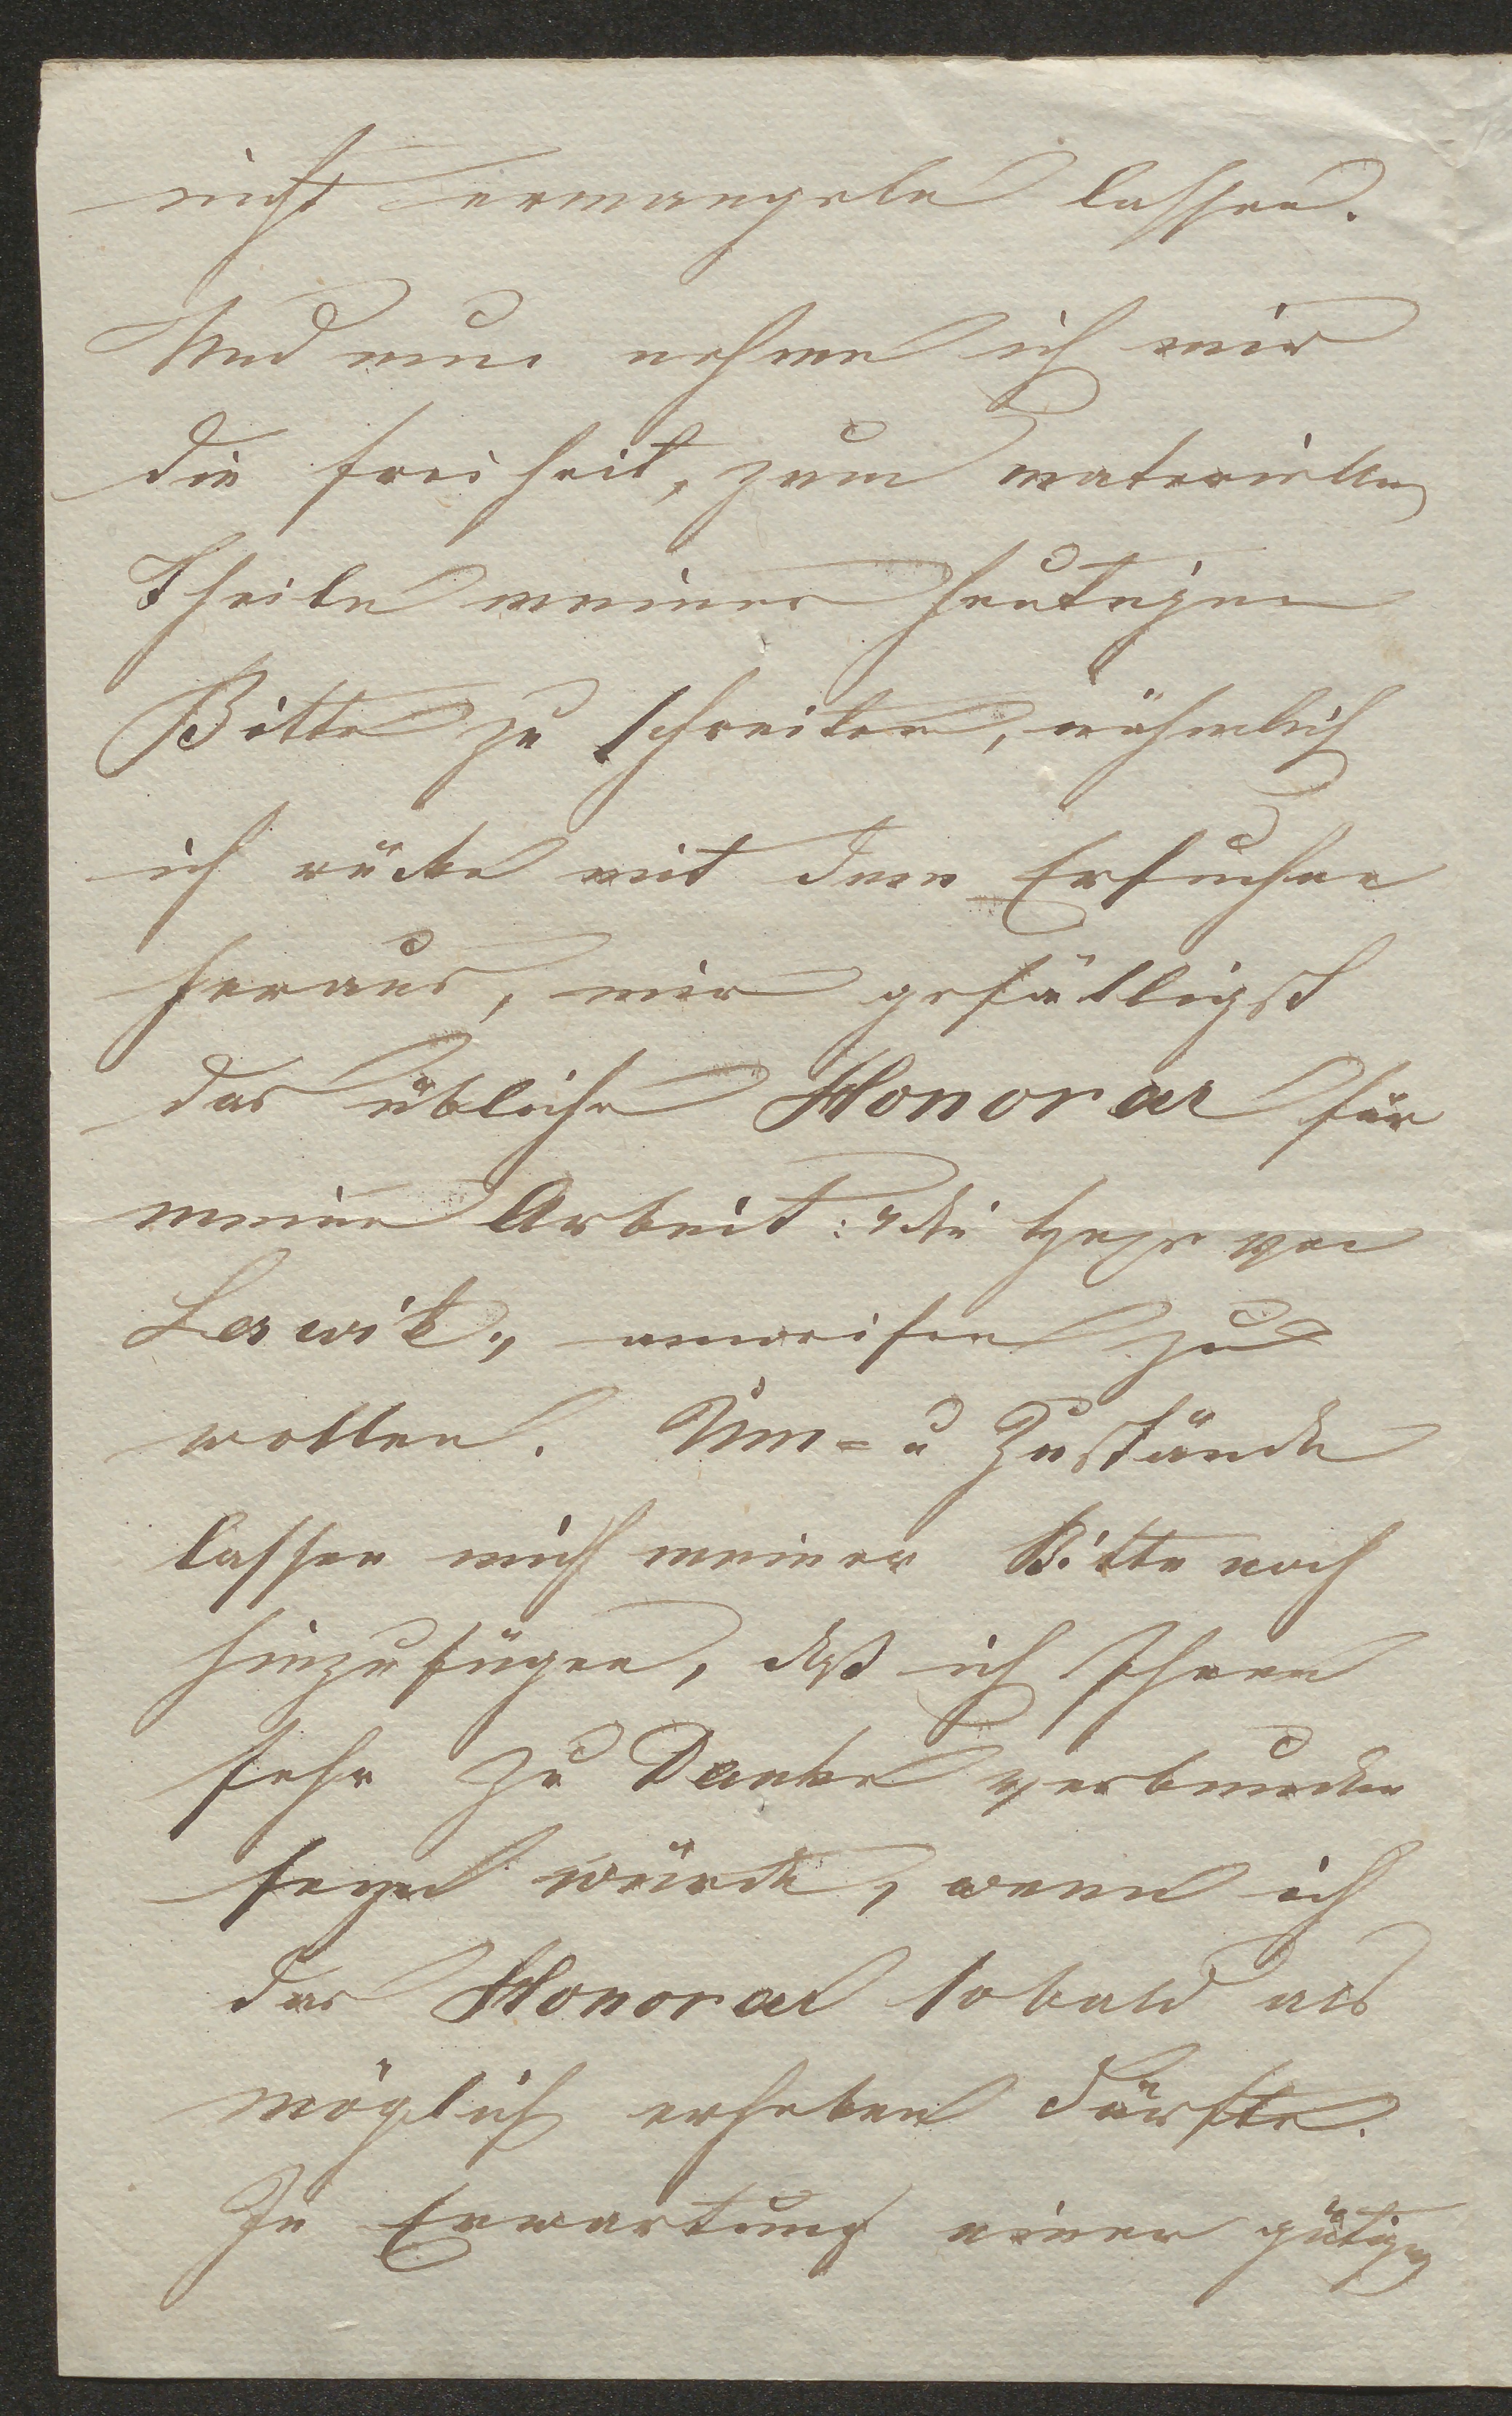 nicht ermangeln lassen.
Und nun nehme ich mir
die Freiheit, zum materiellen
Theile meiner heutigen
Bitte zu schreiten, nähmlich
ich rücke mit dem Ersuchen
heraus, mir gefälligst
das übliche Honorar für
meine Arbeit: „die Hexe von
Lerwik„ anweisen zu
wollen. Um- u Zustände
lassen mich meiner Bitte noch
hinzufügen, daß ich Ihnen
sehr zu Danke verbunden
seyn würde, wenn ich
das Honorar sobald als
möglich erheben dürfte.
In Erwartung einer gütigen